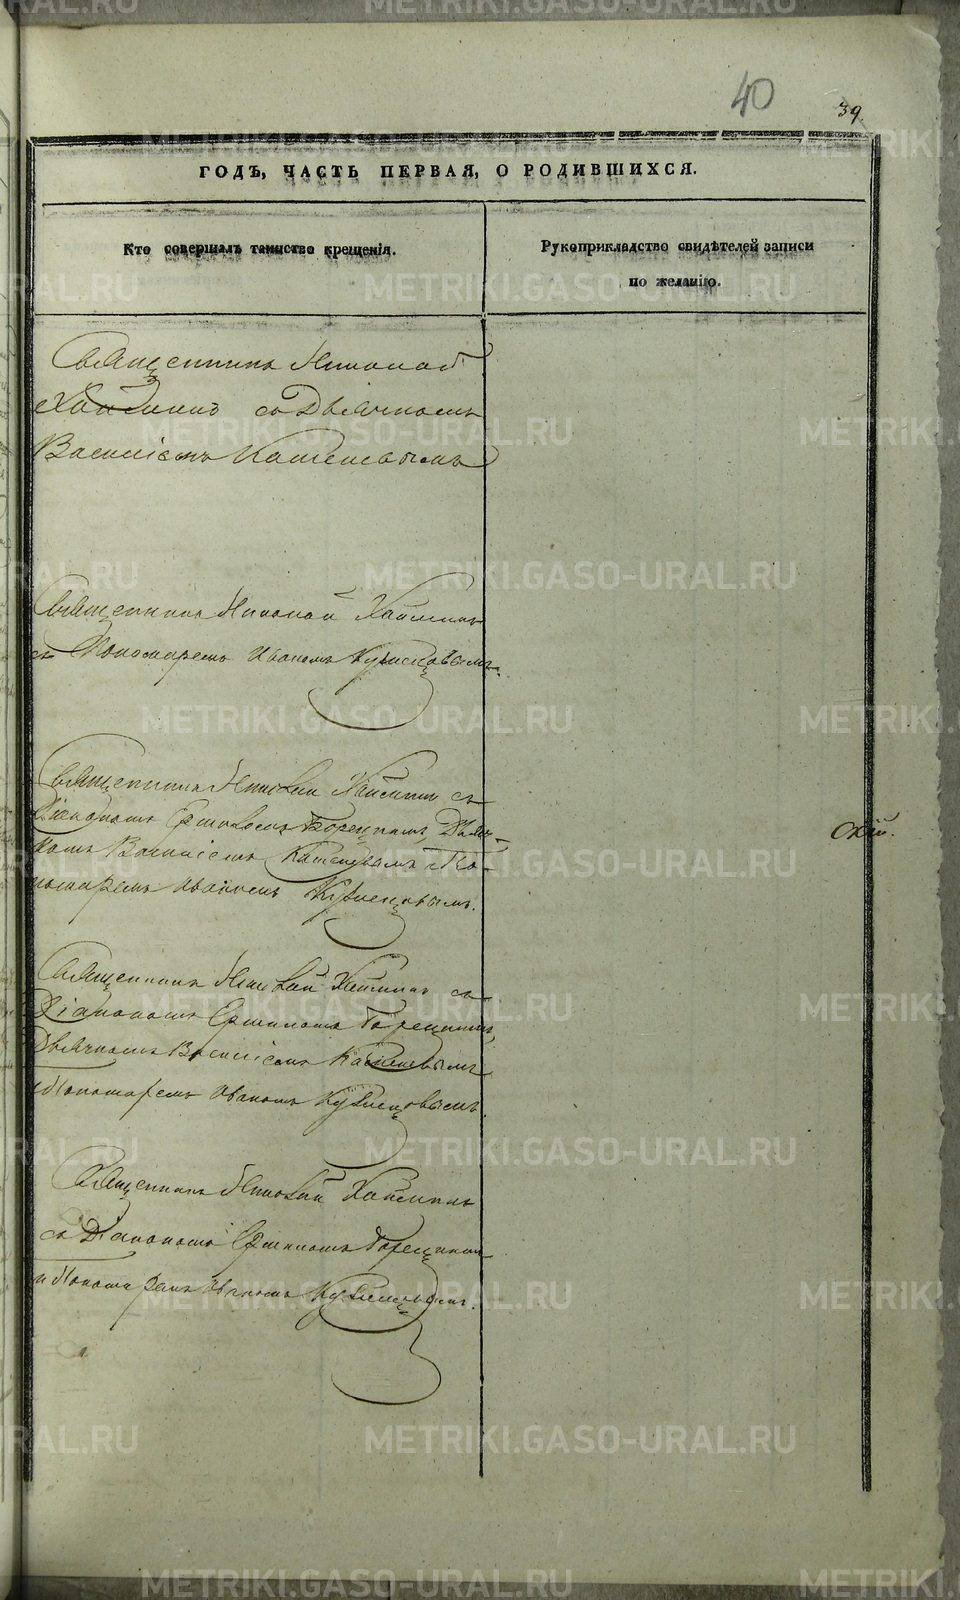 40
39.
ГОДЪ, ЧАСТЬ ПЕРВАЯ, О РОДИВШИХСЯ.
Кто совершалъ таинство крещенія.
Рукоприкладство свидѣтелей записи
по желанію.
Священникъ Николай
съ Дьячкомъ
Василіемъ Кашеневымъ
Священникъ Николай
съ Пономаремъ Иваномъ Кузнецовымъ.
Священникъ Николай съ
Діакономъ Дьяч-
комъ Василіемъ Кашеневымъ и По-
номаремъ Иваномъ Кузнецовымъ.
Священникъ Николай съ
Діакономъ
Дьячкомъ Василіемъ Кашеневымъ
и Пономаремъ Иваномъ Кузнецовымъ.
Священникъ Николай
съ Діакономъ
и Пономаремъ Иваномъ Кузнецовымъ.
METRIKI.GASO-URAL.RU